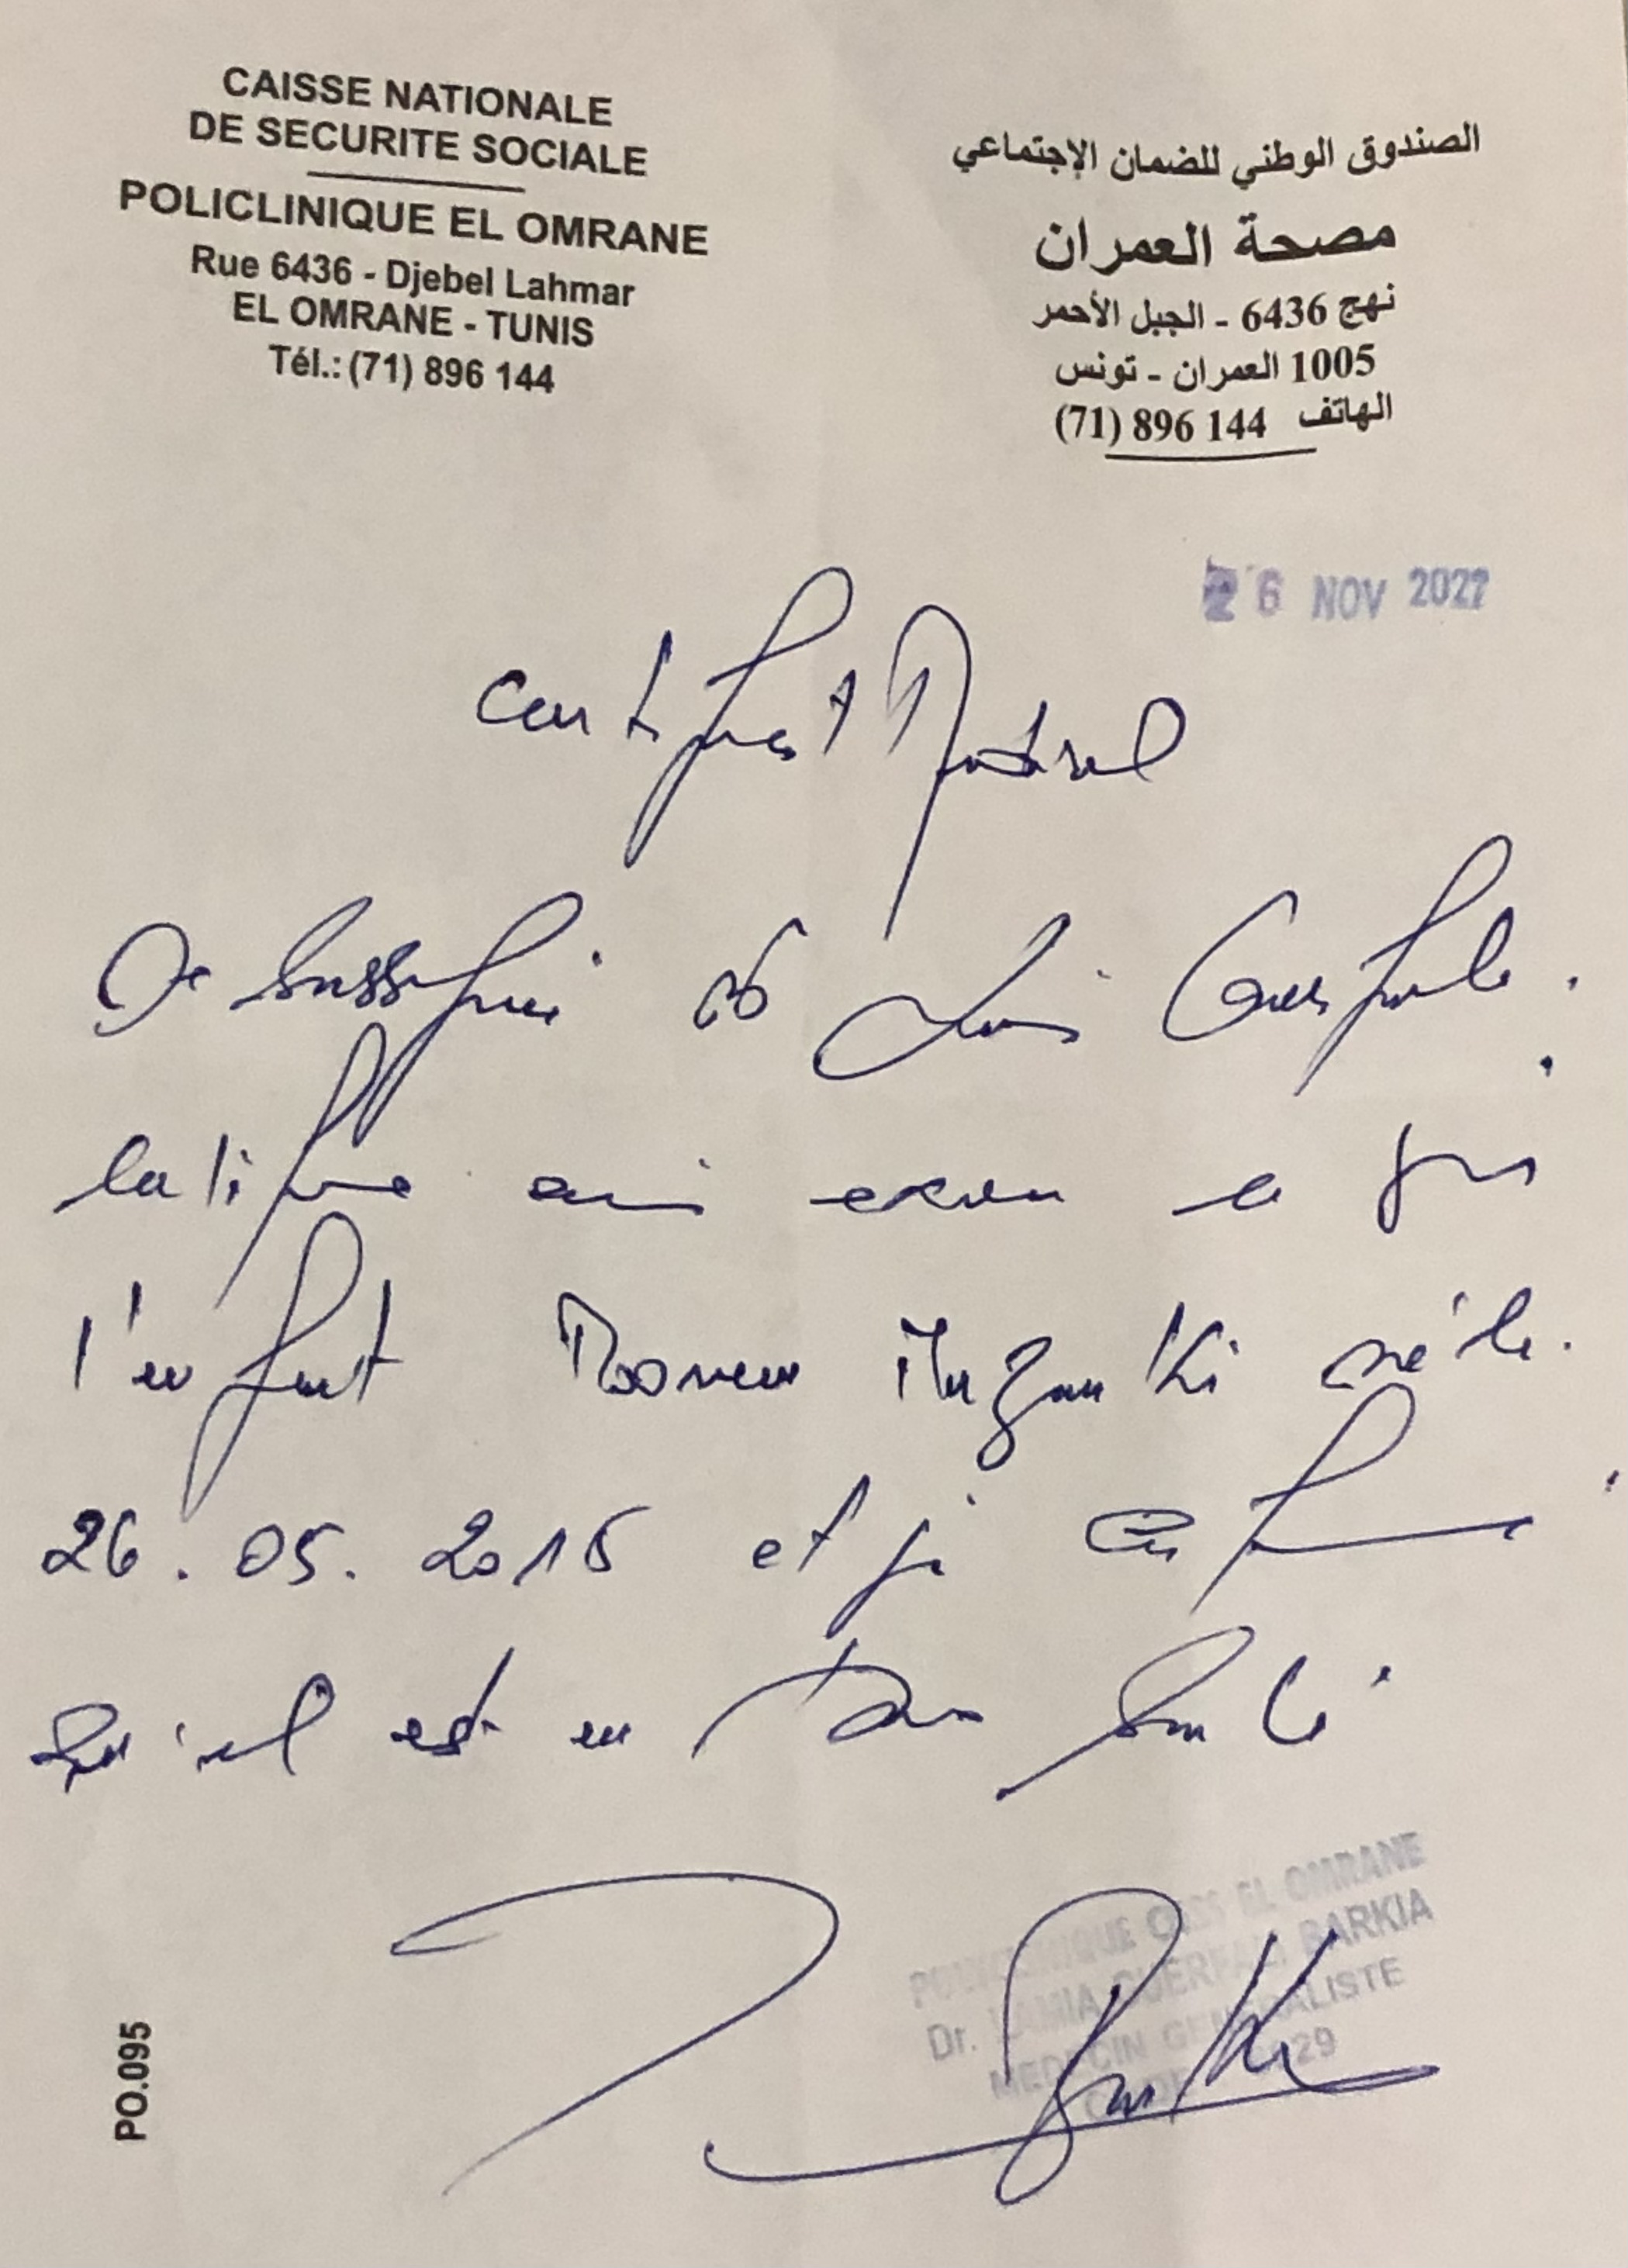 CAISSE NATIONALE
DE SECURITE SOCIALE
POLICLINIQUE EL OMRANE
Rue 6436 - Djebel Lahmar
EL OMRANE - TUNIS
Tél.: (71) 896 144
الصندوق الوطني للضمان الإجتماعي
مصحة العمران
نهج 6436 - الجبل الأحمر
1005 العمران - تونس
الهاتف 144 896 (71)
26 NOV 2022
Certificat Médical
Je soussigné Dr Guerfala
certifie avoir examiné ce jour
l'enfant né le
26.05.2016 et je confirme
qu'il est en bonne santé
POLYCLINIQUE CNSS EL OMRANE
Dr. LAMIA GUERFALA BARKIA
MEDECIN GENERALISTE
PO.095